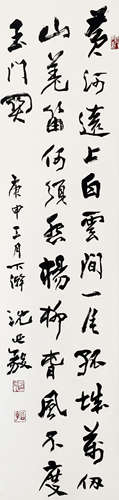 黄河遠上白雲間一片孤城萬仞
山羌笛何須怨楊柳春風不度
玉門關
庚申三月下澣 沈延毅